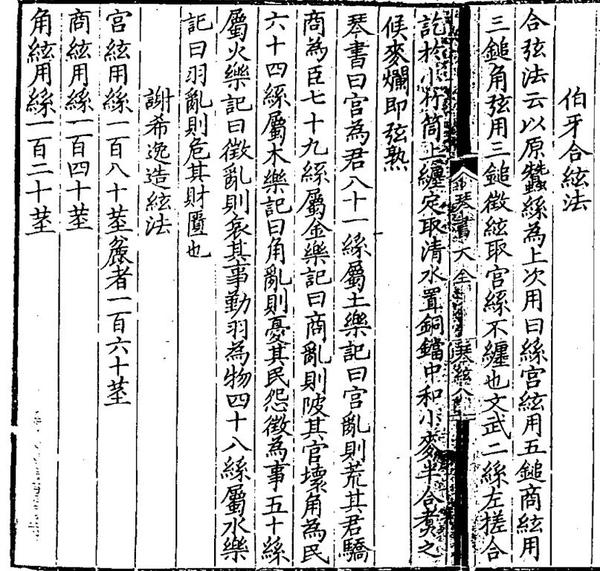 伯牙合絃法
合弦法云以原蠶絲為上次用曰絲宮絃用五鎚商絃用
三鎚角弦用三鎚徵絃取宮絲不纏也文武二絲左搓合
琴書大全 琴絃八
訖於小竹筒上纏定取清水置銅鐺中和小麥半合煑之
候麥爛即弦熟
琴書曰宮為君八十一絲屬土樂記曰宮亂則荒其君驕
商為臣七十九絲屬金樂記曰商亂則陂其官壞角為民
六十四絲屬木樂記曰角亂則憂其民怨徵為事五十絲
屬火樂記曰徵亂則哀其事勤羽為物四十八絲屬水樂
記曰羽亂則危其財匱也
謝希逸造絃法
宮絃用絲一百八十莖麄者一百六十莖
商絃用絲一百四十莖
角絃用絲一百二十莖